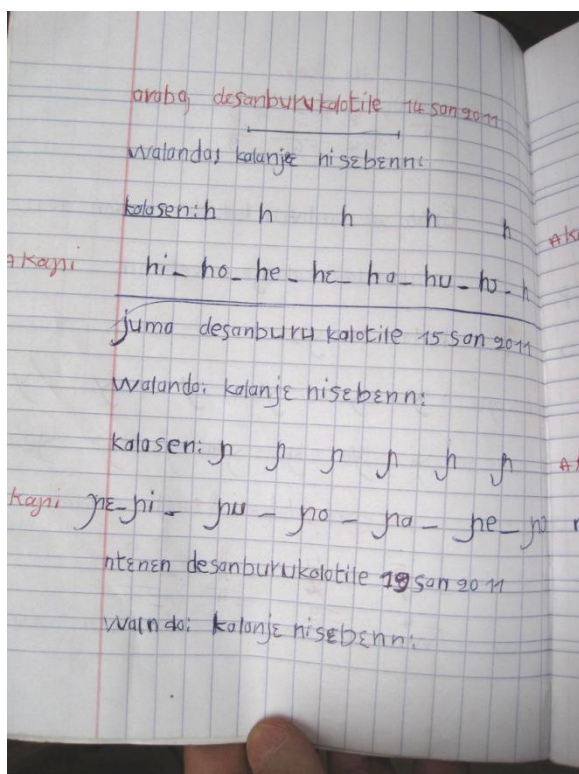 araba desanburukalotile 14 san 2011
walanda: kalanjɛ nisɛbɛnn:
kalasen: h h h h h
A kaɲi hi_ ho_ he_ hɛ_ ha_ hu_ hɔ_ h
juma desanburu kalotile 15 san 2011
walanda: kalanjɛ nisɛbɛnn:
kalasen: ɲ ɲ ɲ ɲ ɲ ɲ
kaɲi ɲɛ_ɲi_ ɲu_ ɲo_ ɲa_ ɲe_ɲɔ
ntɛnɛn desanburukalotile 19 san 2011
walnda: kalanjɛ nisɛbɛnn: